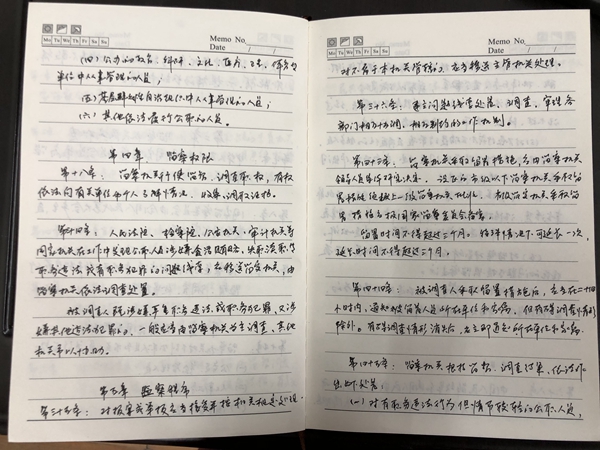 Memo No
Mo Tu We Th Fr Sa Su
Date / /
(四) 公办的教育、科研、文化、医疗、体育等
单位中从事管理的人员；
(五) 基层群众性自治组织中从事管理的人员；
(六) 其他依法履行公职的人员。
第四章 监察权限
第十八条： 监察机关行使监督、调查职权，有权
依法向有关单位和个人了解情况，收集、调取证据。
人民法院、检察院、公安机关、审计机关等
国家机关在工作中发现公职人员涉嫌贪污贿赂、失职渎职等
职务违法或者职务犯罪的问题线索，应移送监察机关，由
监察机关依法调查处置。
被调查人既涉嫌严重职务违法或职务犯罪，又涉
嫌其他违法犯罪的，一般应当由监察机关为主调查，其他
机关予以协助。
第五章 监察程序
第三十五条： 对报案或举报应当接受并按有关规定处理。
Memo No
Mo Tu We Th Fr Sa Su
Date / /
对不属于本机关管辖的，应当移送主管机关处理。
第三十六条： 建立问题线索处置、调查、审理各
部门相互协调、相互制约的工作机制。
第四十三条： 监察机关采取留置措施，应由监察机关
领导人员集体研究决定。设区的市级以下监察机关采取留
置措施应报上一级监察机关批准。省级监察机关采取留
置措施应报国家监察委员会备案。
留置时间不得超过三个月。特殊情况下可延长一次，
延长时间不得超过三个月。
第四十四条： 被调查人采取留置措施后，应当在二十四
小时内，通知被留置人员所在单位和家属。但有碍调查情形
除外。有碍调查情形消失后，应立即通知所在单位和家属。
第四十五条： 监察机关根据监督、调查结果，依法作
出如下处置：
(一) 对有职务违法行为但情节较轻的公职人员，